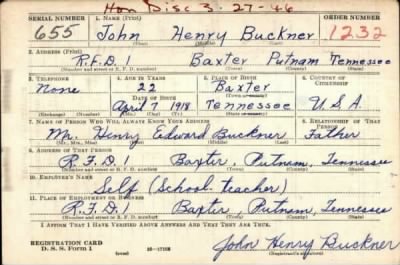 Hon Disc 3-27-46
SERIAL NUMBER 1. NAME (Print) ORDER NUMBER
655 John Henry Buckner 1232
(First) (Middle) (Last)
2. ADDRESS (Print)
R.F.D. 1 Baxter Putnam Tennessee
(Number and street or R. F. D. number) (Town) (County) (State)
3. TELEPHONE 4. AGE IN YEARS 5. PLACE OF BIRTH 6. COUNTRY OF CITIZENSHIP
None 22 Baxter
DATE OF BIRTH (Town or county)
April 7 1918 Tennessee U.S.A.
(Exchange) (Number) (Mo.) (Day) (Yr.) (State or country)
7. NAME OF PERSON WHO WILL ALWAYS KNOW YOUR ADDRESS 8. RELATIONSHIP OF THAT PERSON
Mr. Henry Edward Buckner Father
(Mr., Mrs., Miss) (First) (Middle) (Last)
9. ADDRESS OF THAT PERSON
R.F.D. 1 Baxter, Putnam, Tennessee
(Number and street or R. F. D. number) (Town) (County) (State)
10. EMPLOYER'S NAME
Self (School-teacher)
11. PLACE OF EMPLOYMENT OR BUSINESS
R.F.D. 1 Baxter, Putnam, Tennessee
(Number and street or R. F. D. number) (Town) (County) (State)
I AFFIRM THAT I HAVE VERIFIED ABOVE ANSWERS AND THAT THEY ARE TRUE.
REGISTRATION CARD
D. S. S. Form 1 (over) 16-17105 John Henry Buckner
(Registrant's signature)